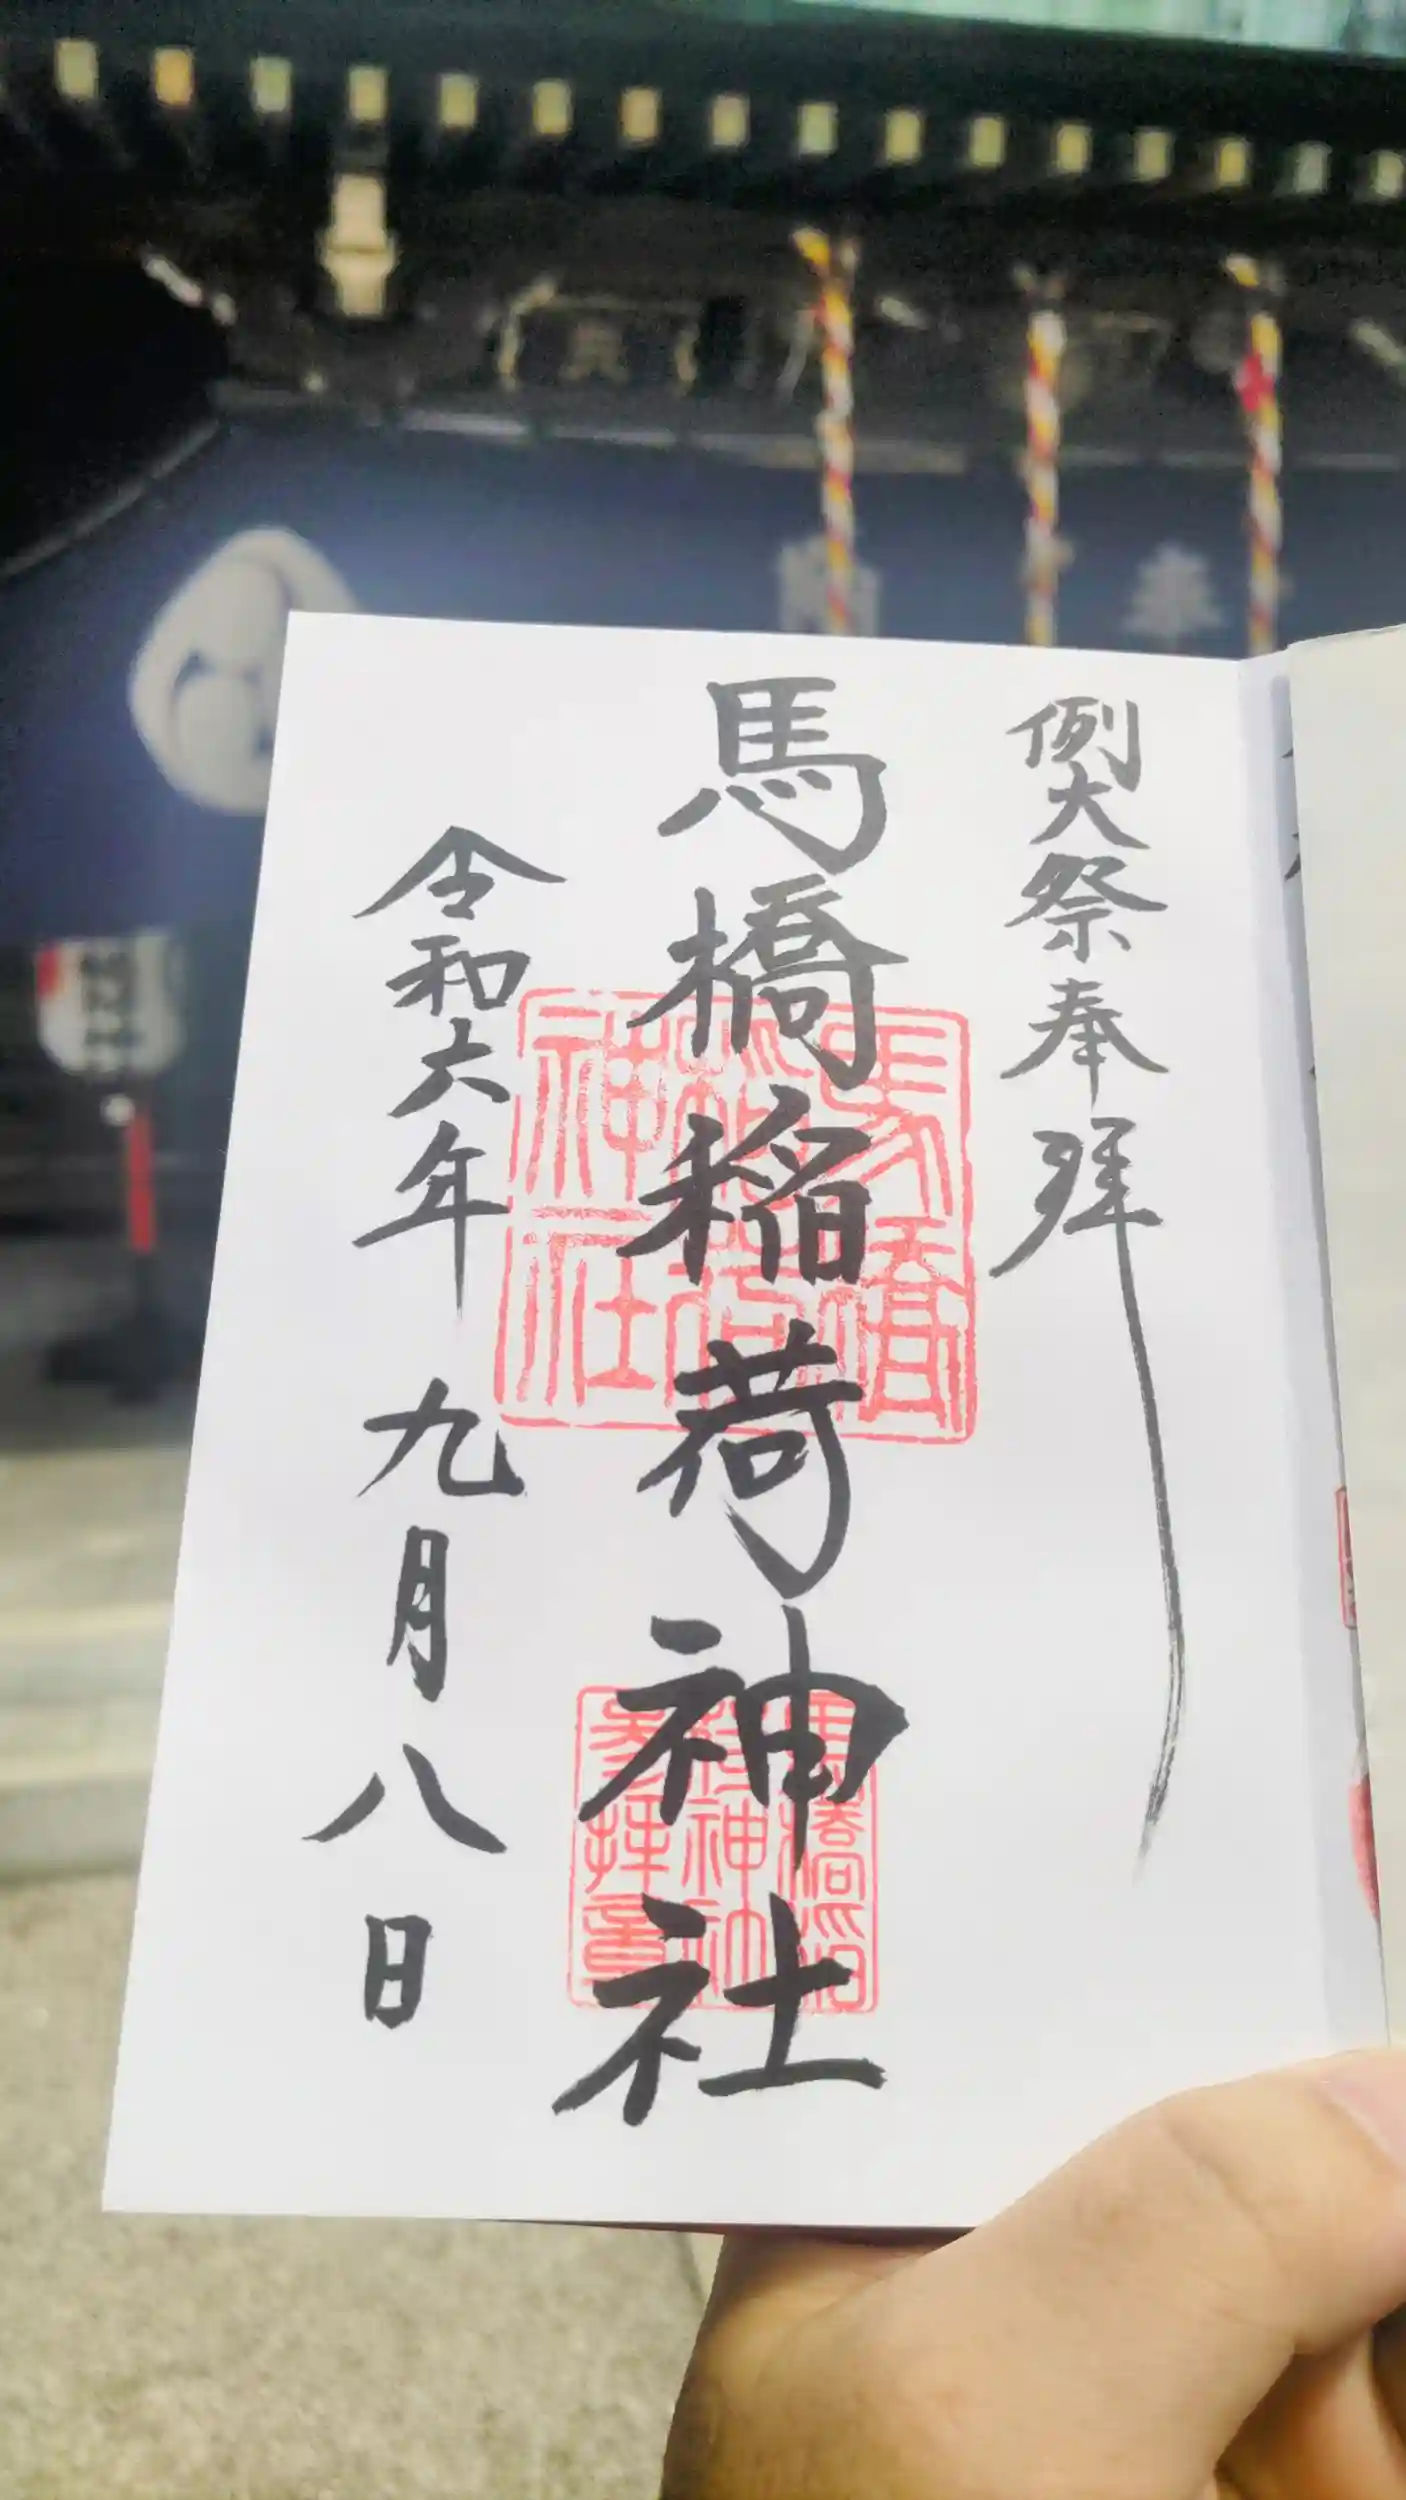 例大祭奉拝
馬橋稲荷神社
令和六年 九月八日
馬橋稲荷神社
馬橋稲荷神社参拝章
奉